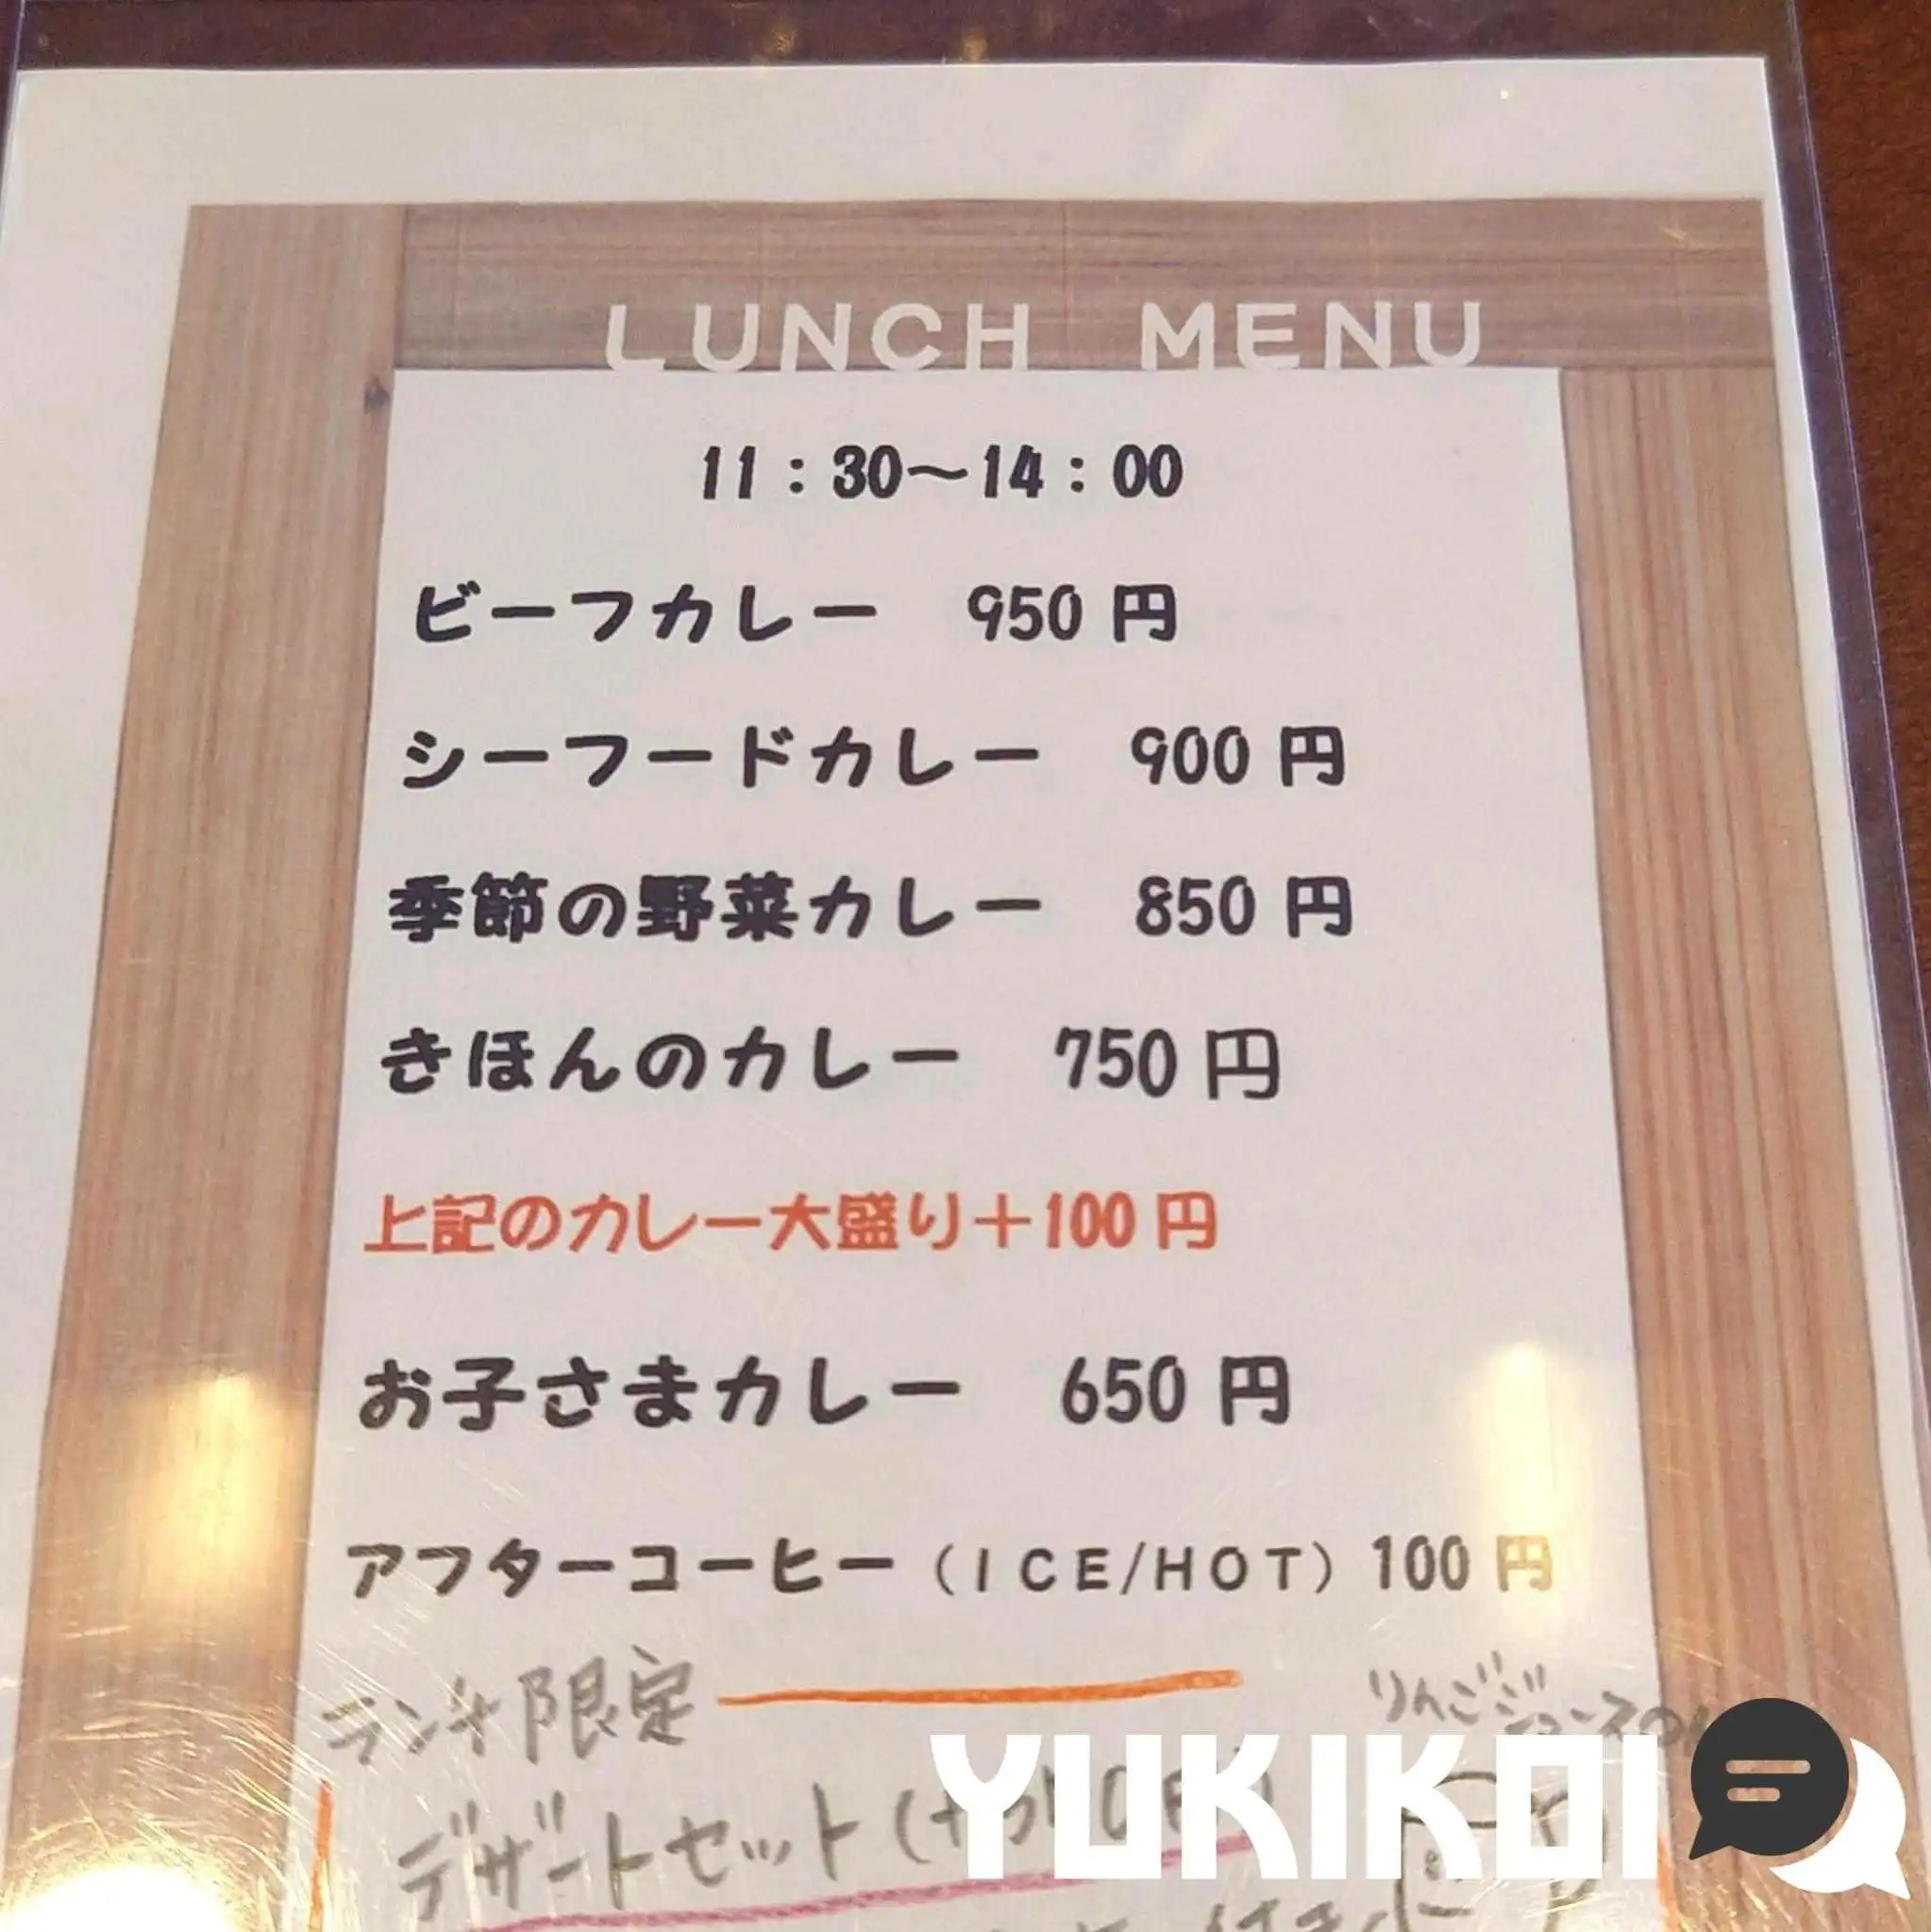 LUNCH MENU
11：30～14：00
ビーフカレー 950 円
シーフードカレー 900 円
季節の野菜カレー 850 円
きほんのカレー 750 円
上記のカレー大盛り＋100 円
お子さまカレー 650 円
アフターコーヒー（ICE/HOT）100 円
ランチ限定
りんごジュースの
デザートセット
YUKIKOI